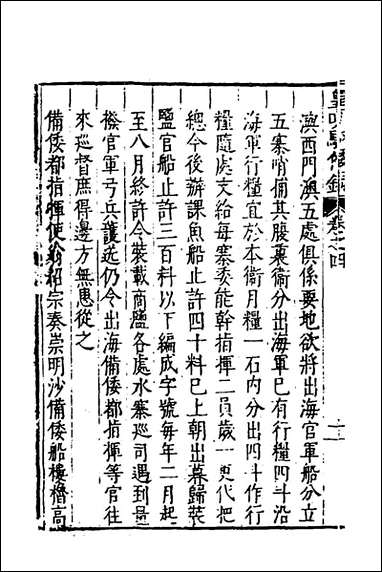 皇明馭倭録 卷之四
澳西門澳五處俱係要地欲將出海官軍船分立
五寨哨備其腹裏衛分出海軍巳有行糧四斗沿
海軍行糧宜於本衛月糧一石内分出四斗作行
糧隨處支給每寨委能幹指揮二員歲一更代把
總今後辦課魚船止許四十料巳上朝出暮歸裝
鹽官船止許三百料以下編成字號每年二月起
至八月終許令裝載商鹽各處水寨巡司遇到量
撥官軍弓兵護送仍令出海備倭都指揮等官往
來巡督庶得邊方無患從之
備倭都指揮使翁紹宗奏崇明沙備倭船樓櫓高